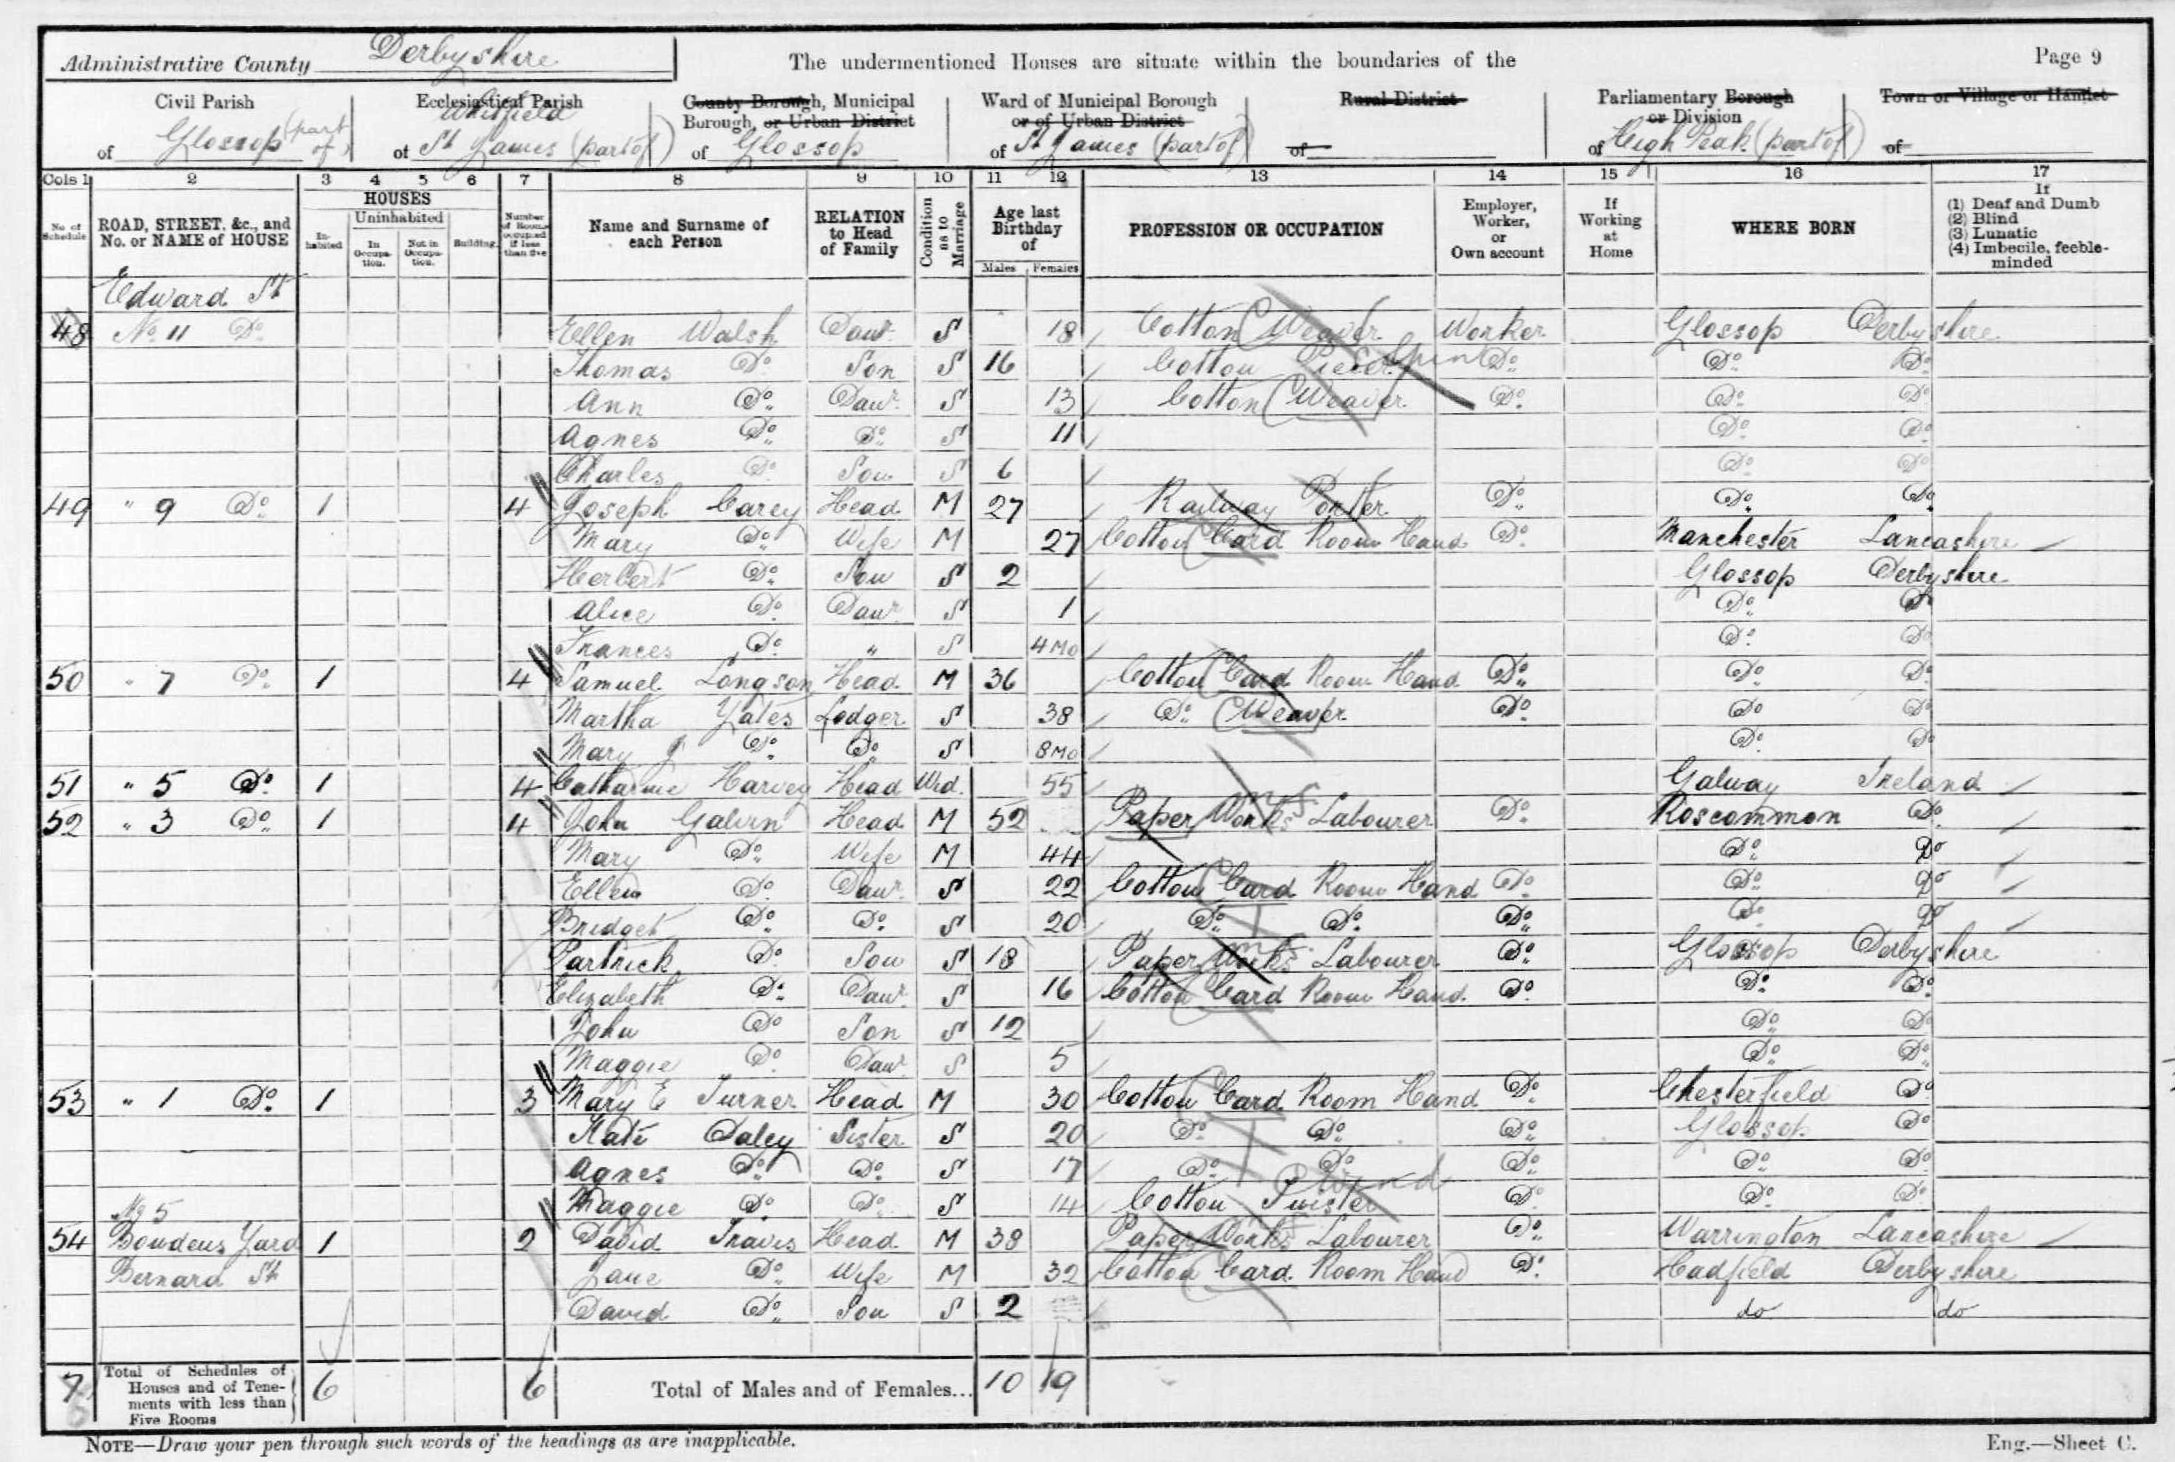 Administrative County Derbyshire The undermentioned Houses are situate within the boundaries of the Page 9
Civil Parish Ecclesiastical Parish County Borough, Municipal Ward of Municipal Borough Rural District Parliamentary Borough Town or Village or Hamlet
Whitfield Borough, or Urban District or of Urban District or Division
of Glossop (part of) of St James (part of) of Glossop of St James (part of) of of High Peak (part of) of
Cols 1 2 3 4 5 6 7 8 9 10 11 12 13 14 15 16 17
No. of Schedule ROAD, STREET, &c., and No. or NAME of HOUSE HOUSES Inhabited Uninhabited In Occupation. Not in Occupation. Building. Number of Rooms occupied if less than five Name and Surname of each Person RELATION to Head of Family Condition as to Marriage Age last Birthday of Males Females PROFESSION OR OCCUPATION Employer, Worker, or Own account If Working at Home WHERE BORN If (1) Deaf and Dumb (2) Blind (3) Lunatic (4) Imbecile, feeble-minded
Edward St
48 No. 11 Do Ellen Walsh Daur S 18 Cotton Weaver Worker Glossop Derbyshire
Thomas Do Son S 16 Cotton Piecer Spin Do Do Do
Ann Do Daur S 13 Cotton Weaver Do Do Do
Agnes Do Do S 11 Do Do
Charles Do Son S 6 Do Do
49 " 9 Do 1 4 Joseph Carey Head M 27 Railway Porter Do Do Do
Mary Do Wife M 27 Cotton Card Room Hand Do Manchester Lancashire
Herbert Do Son S 2 Glossop Derbyshire
Alice Do Daur S 1 Do Do
Frances Do " S 4 Mo Do Do
50 " 7 Do 1 4 Samuel Longson Head M 36 Cotton Card Room Hand Do Do Do
Martha Yates Lodger S 38 Do Weaver Do Do Do
Mary J Do Do S 8 Mo Do Do
51 " 5 Do 1 4 Catharine Harvey Head Wid. 55 Galway Ireland
52 " 3 Do 1 4 John Galvin Head M 52 Paper Works Labourer Do Roscommon Do
Mary Do Wife M 44 Do Do
Ellen Do Daur S 22 Cotton Card Room Hand Do Do Do
Bridget Do Do S 20 Do Do Do Do Do
Partrick Do Son S 18 Paper Works Labourer Do Glossop Derbyshire
Elizabeth Do Daur S 16 Cotton Card Room Hand Do Do Do
John Do Son S 12 Do Do
Maggie Do Daur S 5 Do Do
53 " 1 Do 1 3 Mary E Turner Head M 30 Cotton Card Room Hand Do Chesterfield Do
Kate Daley Sister S 20 Do Do Do Glossop Do
Agnes Do Do S 17 Do Do Do Do Do
Maggie Do Do S 14 Cotton Twister Wind Do Do Do
No 5
54 Boudens Yard 1 2 David Travis Head M 38 Paper Works Labourer Do Warrington Lancashire
Bernard St Jane Do Wife M 32 Cotton Card Room Hand Do Hadfield Derbyshire
David Do Son S 2 do do
7 Total of Schedules of Houses and of Tenements with less than Five Rooms 6 6 Total of Males and of Females... 10 19
NOTE—Draw your pen through such words of the headings as are inapplicable. Eng.—Sheet C.